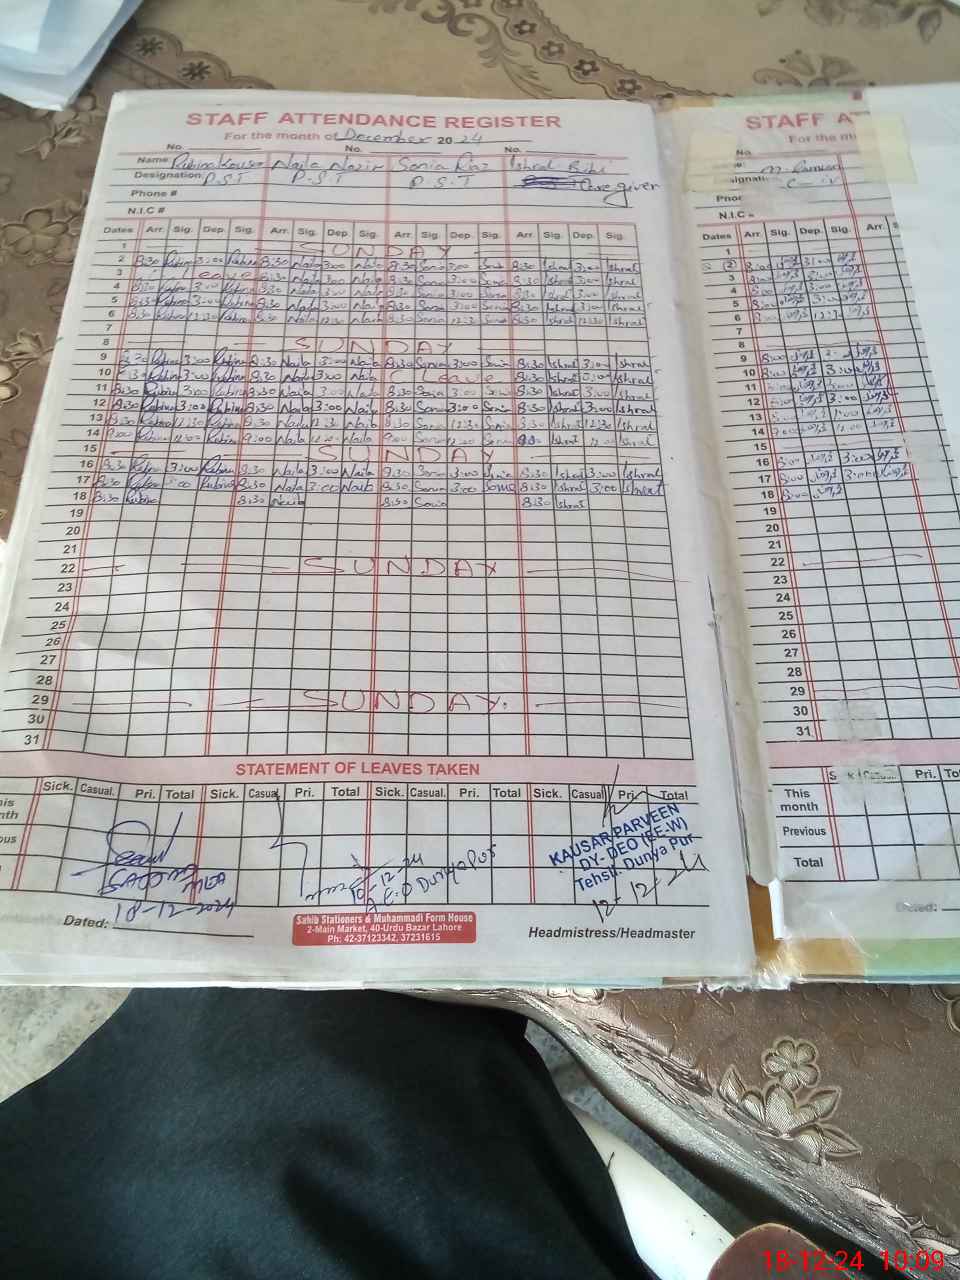 STAFF ATTENDANCE REGISTER
For the month of December 2024
No. No. No.
Name: Rubina Kouser Naila Nazir Sonia Riaz Ishrat Bibi
Designation: P.S.T P.S.T P.S.T Care giver
Phone #
N.I.C #
Dates Arr. Sig. Dep. Sig. Arr. Sig. Dep. Sig. Arr. Sig. Dep. Sig. Arr. Sig. Dep. Sig.
1 SUNDAY
2 8:30 Rubina 3:00 Rubina 8:30 Naila 3:00 Naila 8:30 Sonia 3:00 Sonia 8:30 Ishrat 3:00 Ishrat
3 Leave 8:30 Naila 3:00 Naila 8:30 Sonia 3:00 Sonia 8:30 Ishrat 3:00 Ishrat
4 8:30 Rubina 3:00 Rubina 8:30 Naila 3:00 Naila 8:30 Sonia 3:00 Sonia 8:30 Ishrat 3:00 Ishrat
5 8:30 Rubina 3:00 Rubina 8:30 Naila 3:00 Naila 8:30 Sonia 3:00 Sonia 8:30 Ishrat 3:00 Ishrat
6 8:30 Rubina 12:30 Rubina 8:30 Naila 12:30 Naila 8:30 Sonia 12:30 Sonia 8:30 Ishrat 12:30 Ishrat
7
8 SUNDAY
9 8:30 Rubina 3:00 Rubina 8:30 Naila 3:00 Naila 8:30 Sonia 3:00 Sonia 8:30 Ishrat 3:00 Ishrat
10 8:30 Rubina 3:00 Rubina 8:30 Naila 3:00 Naila Leave 8:30 Ishrat 3:00 Ishrat
11 8:30 Rubina 3:00 Rubina 8:30 Naila 3:00 Naila 8:30 Sonia 3:00 Sonia 8:30 Ishrat 3:00 Ishrat
12 8:30 Rubina 3:00 Rubina 8:30 Naila 3:00 Naila 8:30 Sonia 3:00 Sonia 8:30 Ishrat 3:00 Ishrat
13 8:30 Rubina 12:30 Rubina 8:30 Naila 12:30 Naila 8:30 Sonia 12:30 Sonia 8:30 Ishrat 12:30 Ishrat
14 9:00 Rubina 12:00 Rubina 9:00 Naila 12:00 Naila 9:00 Sonia 12:00 Sonia 9:00 Ishrat 12:00 Ishrat
15 SUNDAY
16 8:30 Rubina 3:00 Rubina 8:30 Naila 3:00 Naila 8:30 Sonia 3:00 Sonia 8:30 Ishrat 3:00 Ishrat
17 8:30 Rubina 3:00 Rubina 8:30 Naila 3:00 Naila 8:30 Sonia 3:00 Sonia 8:30 Ishrat 3:00 Ishrat
18 8:30 Rubina 8:30 Naila 8:30 Sonia 8:30 Ishrat
19
20
21
22 SUNDAY
23
24
25
26
27
28
29 SUNDAY.
30
31
STATEMENT OF LEAVES TAKEN
Sick. Casual. Pri. Total Sick. Casual. Pri. Total Sick. Casual. Pri. Total Sick. Casual Pri. Total
MEA
18-12-2024
10-12-24
A.E.O Dunyapur
KAUSAR PARVEEN
DY. DEO (EE-W)
Tehsil. Dunya Pur
12-12-24
Dated:
Sahib Stationers & Muhammadi Form House
2-Main Market, 40-Urdu Bazar Lahore
Ph: 42-37123342, 37231615
Headmistress/Headmaster
STAFF AT
For the m
N.I.C
Dates Arr. Sig. Dep. Sig. Arr. S
1
2 8:00 3:00
3
4
5
6
7
8
9
10
11
12
13
14
15
16
17
18
19
20
21
22
23
24
25
26
27
28
29
30
31
Casual. Pri. To
This month
Previous
Total
Dated:
18-12-24 10:09